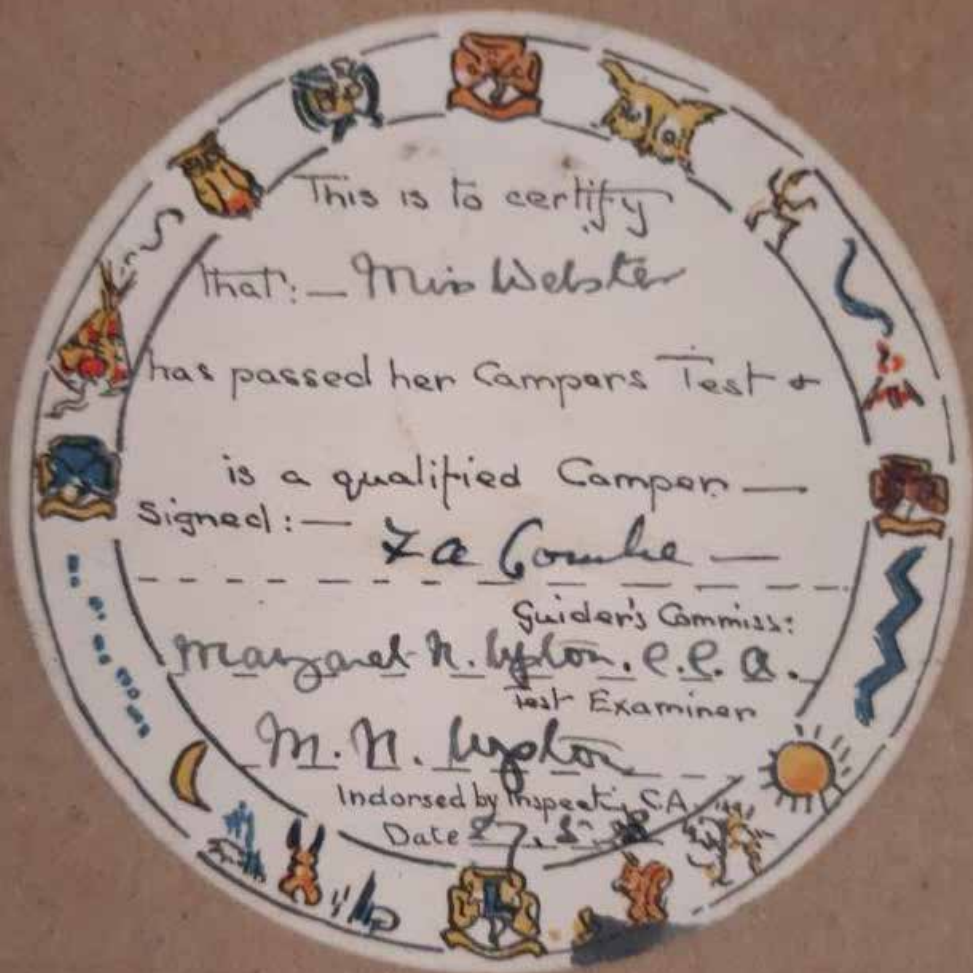 This is to certify
that:— Miss Webster
has passed her Campers Test &
is a qualified Camper —
Signed:—
Guider's Commiss:
Margaret N. Upton. C.C.A.
Test Examiner
M. N. Upton
Indorsed by Inspect. C.A.
Date 27.